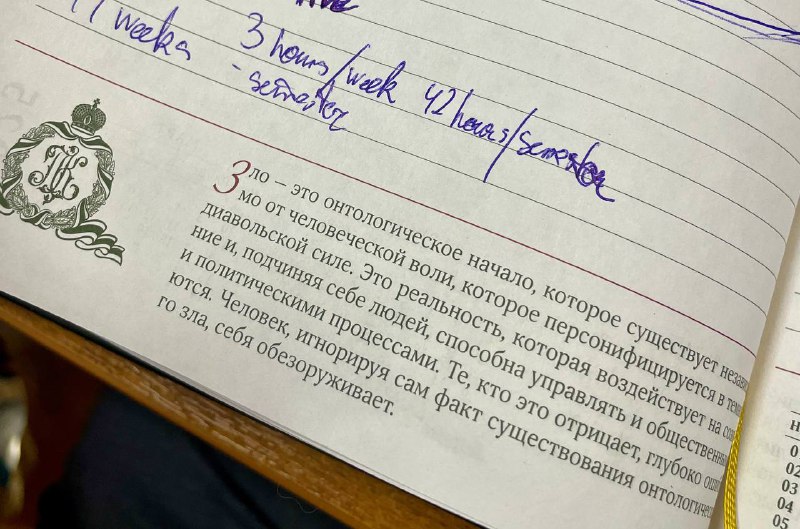 weeks
3 hours/week 42 hours/semester
- semester
Зло – это онтологическое начало, которое существует незави
мо от человеческой воли, которое персонифицируется в
диавольской силе. Это реальность, которая воздействует на
ние и, подчиняя себе людей, способна управлять и общественны
и политическими процессами. Те, кто это отрицает, глубоко
ются. Человек, игнорируя сам факт существования онтологичес
го зла, себя обезоруживает.
Н
0
02
03
04
05